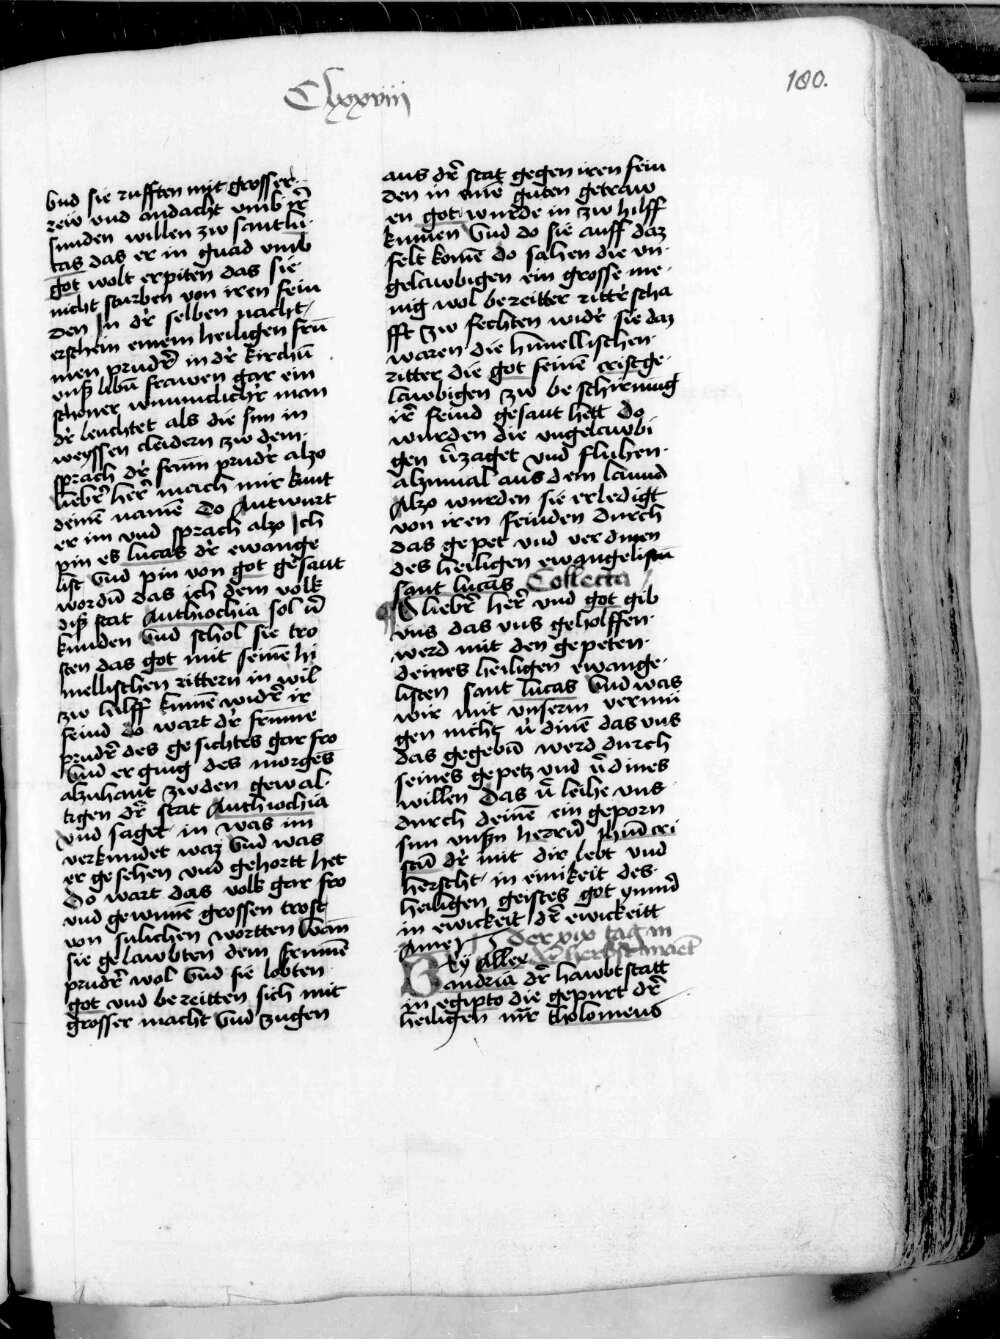 Clxxviii
180.
Vnd sie rufften mit grosser
rew vnd andacht vmb ir̃
sunden willen zw sant lu
cas das er in gnad vmb
got wolt erpiten das sie
nicht sturben von iren fein
den In dr̃ selben nacht
erschein einem heiligen frū
men prudr̃ in dr̃ kirchñ
vnsß libñ frawen gar ein
schoner wunnclichr̃ man
dr̃ leuchtet als die sun in
weyssen cleidern zw dem
sprach dr̃ frum̄ prudr̃ alzo
liebr̃ her̃ mach mir kunt
deinē namē Do Antwurt
er im vnd sprach alzo Ich
pin es lucas dr̃ ewange
list Vnd pin von got gesant
wordñ das ich dem volk
diß stat Anthiochia sol v̄
kunden Vnd schol sie tro
sten das got mit seinē hi
mellischen rittern in wil
zw hilff kumē widr̃ ir
feind Do wart dr̃ frume
prudr̃ des gesichtes gar fro
Vnd er ging des morgēs
alzuhant zw den gewal
tigen dr̃ stat Anthiochia
vnd saget in was im
verkundet waz Vnd was
er gesehen vnd gehortt het
Do wart das volk gar fro
vnd gewunē grossen trost
von sulichen wortten Wan
sie gelawbten dem frumē
prudr̃ wol Vnd sie lobten
got vnd bereitten sich mit
grosser macht Vnd zugen
aus dr̃ stat gegen iren fein
den in einē guten getraw
en got wurde in zw hilff
kumen Vnd do sie auff daz
felt komē do sahen die vn
gelawbigen ein grosse me
nig wol bereitter rittr̃scha
fft zw fechten widr̃ sie daz
waren die himellischen
ritter die got seinē cristge
lawbigen zw beschirmug
ir̃ feind gesant hett Do
wurden die vngelawbi
gen v̄zaget vnd fluhen
alzumal aus dem lannd
Alzo wurden sie erledigt
von iren feinden durch
das gepet vnd verdinen
des heiligen ewangelistñ
sant lucas Collecta
O liebr̃ her̃ vnd got gib
vns das vns geholffen
werd mit den gepeten
deines heiligen ewange
listen sant lucas Vnd was
wir mit vnserm vermü
gen nicht v̄dinē das vns
das gegebñ werd durch
seines gepetz vnd v̄dines
willen Das v̄leihe vns
durch deinē eingeporn
sun vnsßn herrñ Jhm̄ cri
stū dr̃ mit dir lebt vnd
herscht in einikeit des
heiligen geistes got ymmd̄
in ewickeit dr̃ ewickeitt
Amen Der xix tag im
herbstmonet
Zw Allex
andria dr̃ hawbtstatt
in egipto die gepurt dr̃
heiligen mr̃ tholomeus